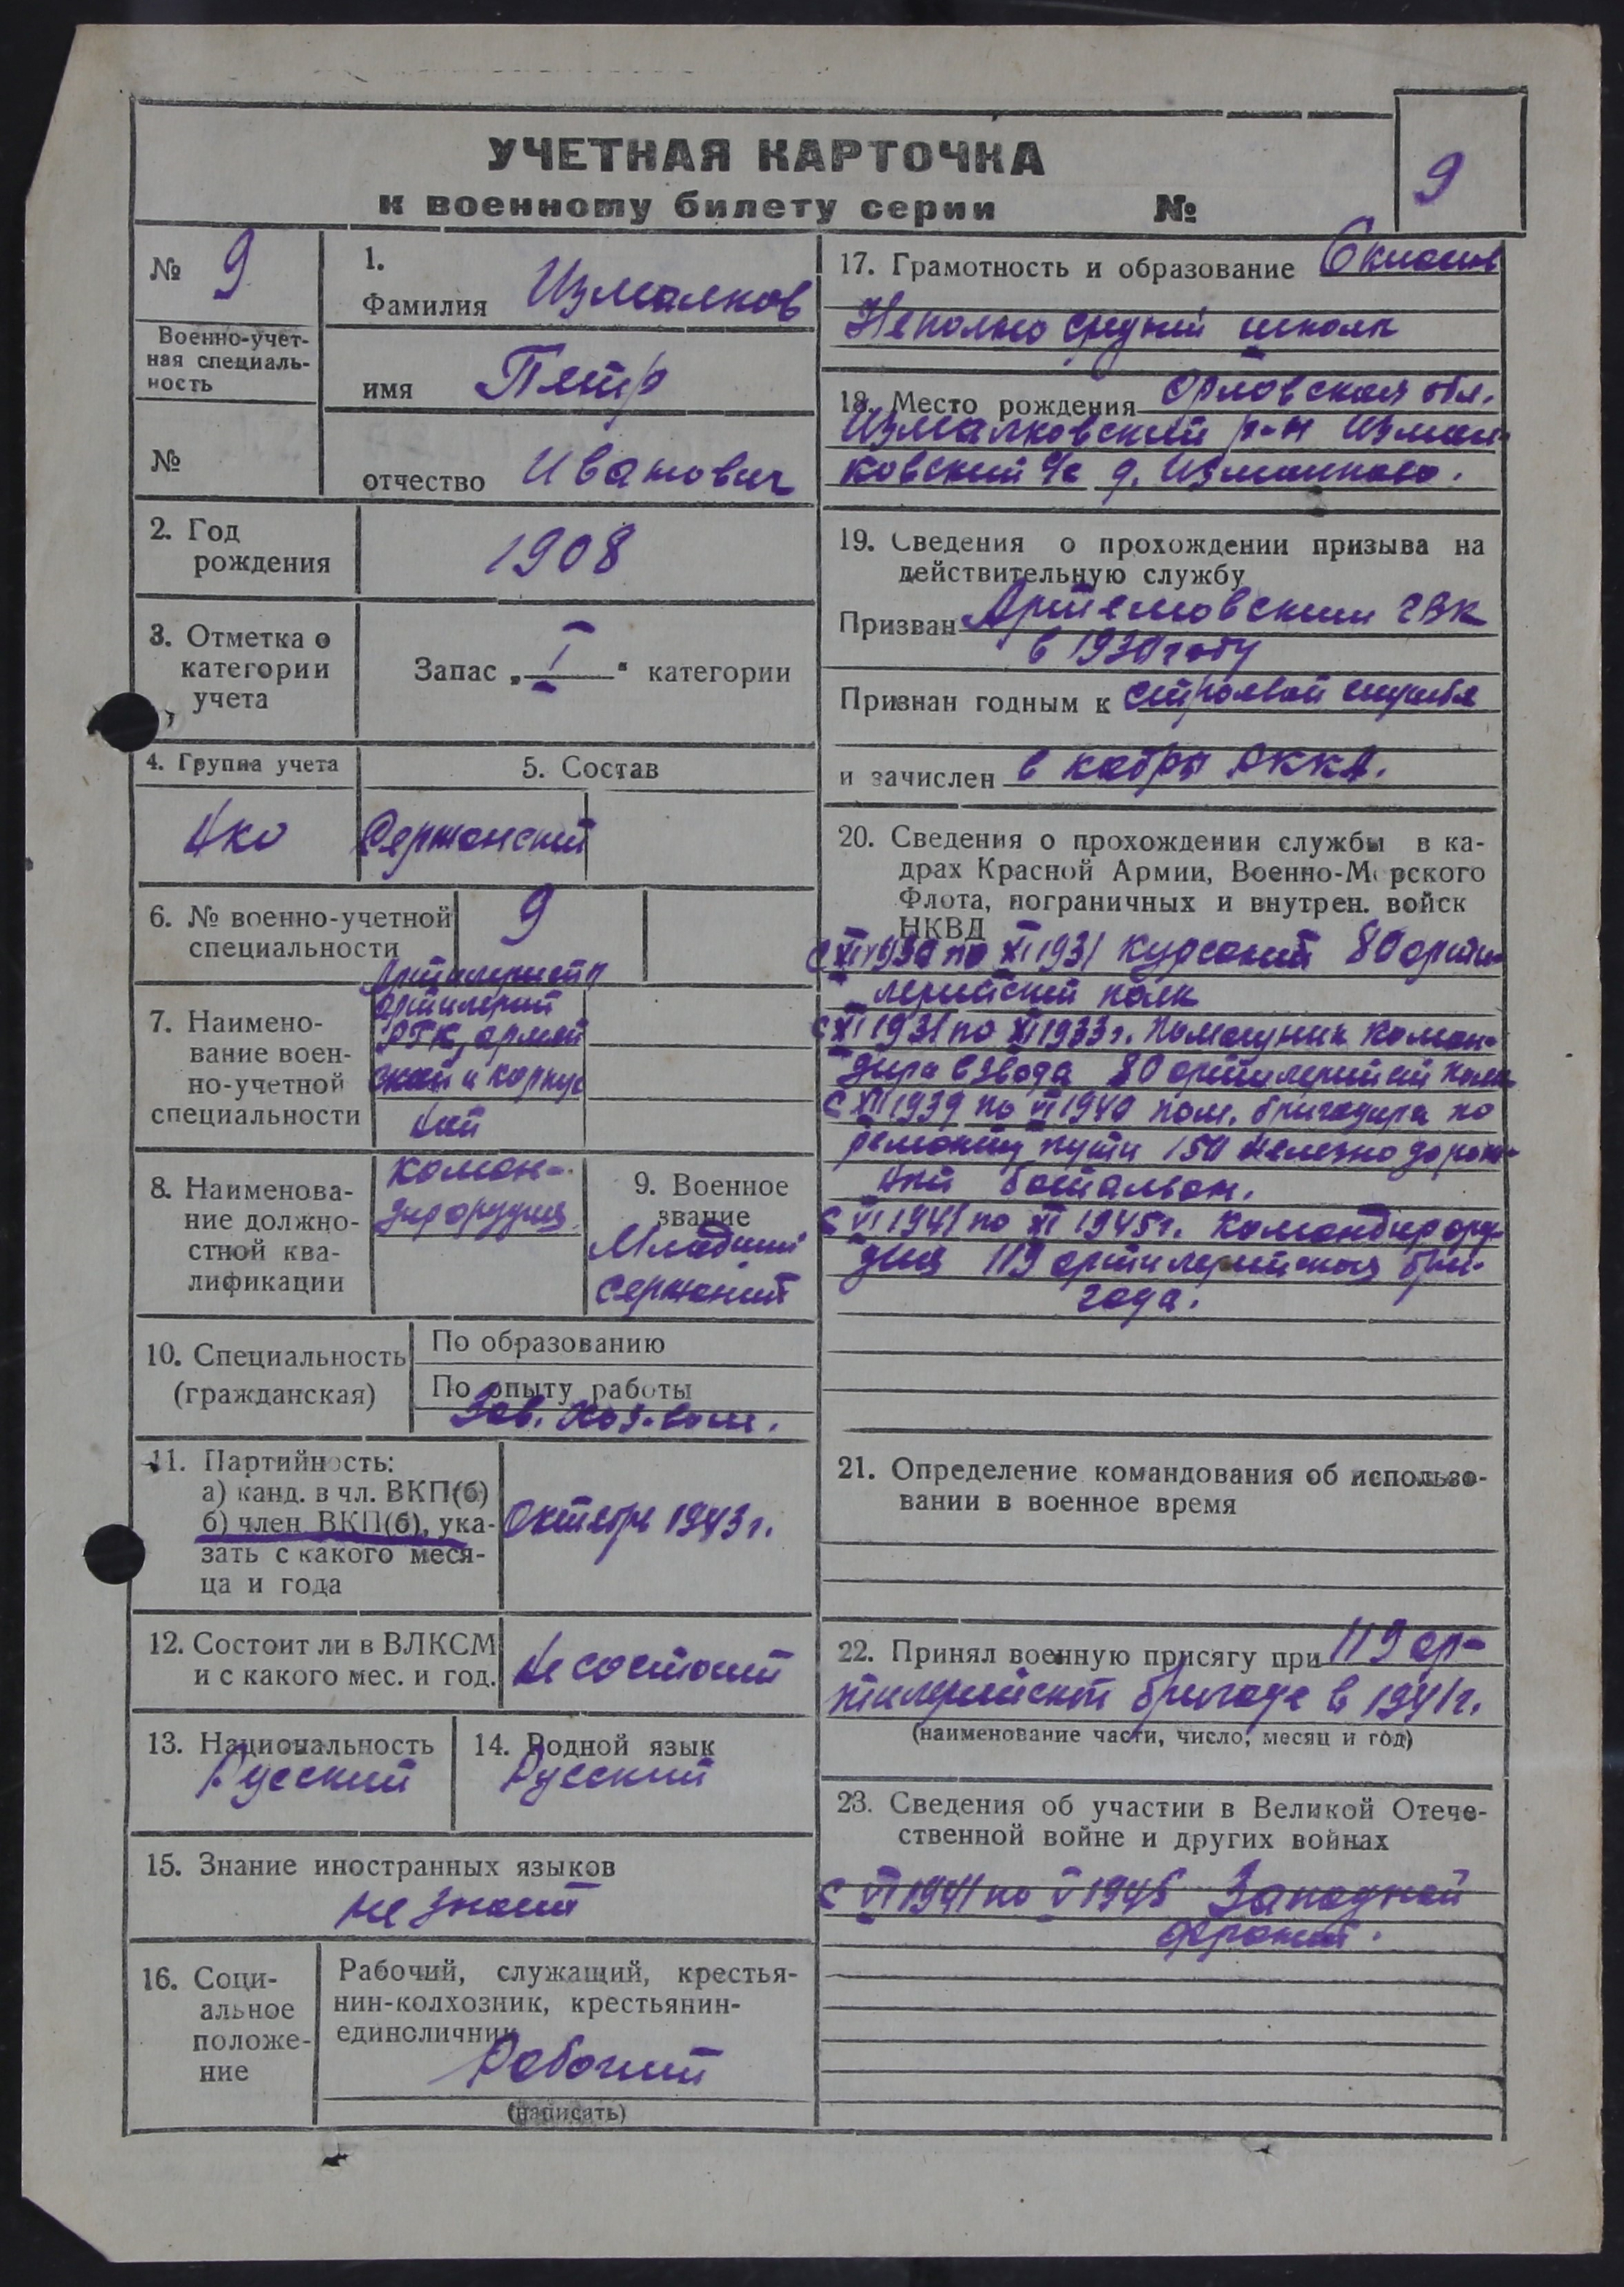 УЧЕТНАЯ КАРТОЧКА
к военному билету серии №
9
№ 9
Военно-учет-
ная специаль-
ность
№
1.
Фамилия Измалков
имя Петр
отчество Иванович
2. Год
рождения
1908
3. Отметка о
категории
учета
Запас „ I " категории
4. Группа учета
5. Состав
Сержанский
6. № военно-учетной
специальности
9
7. Наимено-
вание воен-
но-учетной
специальности
Артилеристы
артилерий
РГК, армей
ской и корпус
ной
8. Наименова-
ние должно-
стной ква-
лификации
Коман-
дир орудия
9. Военное
звание
Младший
сержант
10. Специальность
(гражданская)
По образованию
По опыту работы
Зав. хоз-вом.
11. Партийность:
а) канд. в чл. ВКП(б)
б) член ВКП(б), ука-
зать с какого меся-
ца и года
Октябрь 1943 г.
12. Состоит ли в ВЛКСМ
и с какого мес. и год.
Не состоит
13. Национальность
Русский
14. Родной язык
Русский
15. Знание иностранных языков
не знает
16. Соци-
альное
положе-
ние
Рабочий, служащий, крестья-
нин-колхозник, крестьянин-
единоличник
Рабочий
(написать)
17. Грамотность и образование 6 классов
Неполно средней школы
18. Место рождения Орловская обл.
Измалковский р-н Измал-
ковский с/с д. Измалково.
19. Сведения о прохождении призыва на
действительную службу
Призван Артемовским ГВК
в 1930 году
Признан годным к строевой службе
и зачислен в кадры РККА.
20. Сведения о прохождении службы в ка-
драх Красной Армии, Военно-Морского
Флота, пограничных и внутрен. войск
НКВД
С XI 1930 по XI 1931 Курсант 80 арти-
лерийский полк
С XI 1931 по XI 1933 г. Помощник коман-
дира взвода 80 артилерийский полк
С XII 1939 по VI 1940 пом. бригадира по
ремонту пути 150 железно дорож-
ный баталион.
С VI 1941 по XI 1945 г. Командир ору-
дия 119 артилерийская бри-
гада.
21. Определение командования об использо-
вании в военное время
22. Принял военную присягу при 119 ар-
тилерийской бригаде в 1941 г.
(наименование части, число, месяц и год)
23. Сведения об участии в Великой Отече-
ственной войне и других войнах
С VI 1941 по V 1945 Западной
фронт.